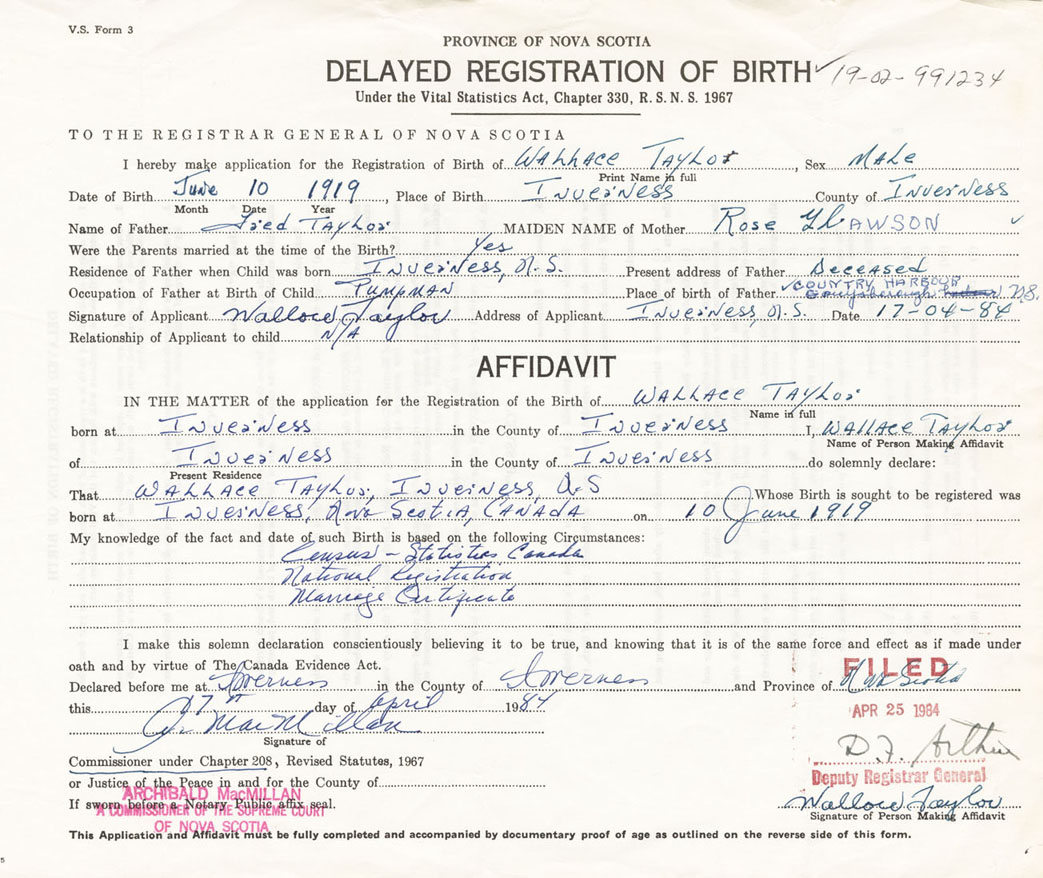 V.S. Form 3
PROVINCE OF NOVA SCOTIA
DELAYED REGISTRATION OF BIRTH ✓ 19-02-991234
Under the Vital Statistics Act, Chapter 330, R.S.N.S. 1967
TO THE REGISTRAR GENERAL OF NOVA SCOTIA
I hereby make application for the Registration of Birth of Wallace Taylor, Sex Male
Print Name in full
Date of Birth June 10 1919, Place of Birth Inverness County of Inverness
Month Date Year
Name of Father Fred Taylor MAIDEN NAME of Mother Rose LAWSON ✓
Were the Parents married at the time of the Birth? Yes
Residence of Father when Child was born Inverness, N.S. Present address of Father Deceased
Occupation of Father at Birth of Child Pumpman Place of birth of Father ✓ COUNTRY HARBOUR N.S.
Signature of Applicant Wallace Taylor Address of Applicant Inverness, N.S. Date 17-04-84
Relationship of Applicant to child N/A
AFFIDAVIT
IN THE MATTER of the application for the Registration of the Birth of Wallace Taylor
Name in full
born at Inverness in the County of Inverness I, Wallace Taylor
Name of Person Making Affidavit
of Inverness in the County of Inverness do solemnly declare:
Present Residence
That Wallace Taylor, Inverness, N.S Whose Birth is sought to be registered was
born at Inverness, Nova Scotia, Canada on 10 June 1919
My knowledge of the fact and date of such Birth is based on the following Circumstances:
Census - Statistics Canada
National Registration
Marriage Certificate
I make this solemn declaration conscientiously believing it to be true, and knowing that it is of the same force and effect as if made under
oath and by virtue of The Canada Evidence Act.
FILED
Declared before me at Inverness in the County of Inverness and Province of Nova Scotia
this 17th day of April 1984
APR 25 1984
A. MacMillan
Signature of
D.F. Arthur
Commissioner under Chapter 208, Revised Statutes, 1967
Deputy Registrar General
or Justice of the Peace in and for the County of
ARCHIBALD MacMILLAN
If sworn before a Notary Public affix seal.
A COMMISSIONER OF THE SUPREME COURT
OF NOVA SCOTIA
Wallace Taylor
Signature of Person Making Affidavit
This Application and Affidavit must be fully completed and accompanied by documentary proof of age as outlined on the reverse side of this form.
5